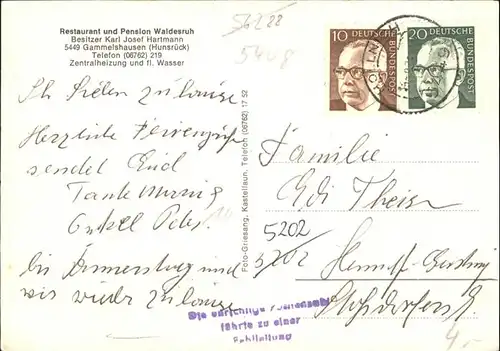 Restaurant und Pension Waldesruh
Besitzer Karl Josef Hartmann
5449 Gammelshausen (Hunsrück)
Telefon (06762) 219
Zentralheizung und fl. Wasser
10 DEUTSCHE BUNDESPOST
20 DEUTSCHE BUNDESPOST
Ihr Lieben zuhause
Herzliche Feriengrüße
sendet Euch
Tante
Onkel Peter
bis Donnerstag sind
wir wieder zuhause
Foto-Griesang, Kastellaun, Telefon (06762) 17 52
Familie
Edi Theisen
5202
5202 Hennef-
Die unrichtige
führte zu einer
Fehlleitung
4,-